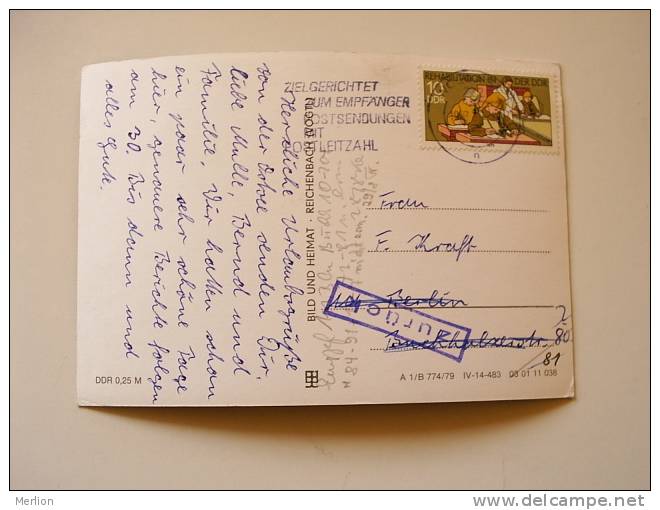 Herzliche Urlaubsgrüße
von der Ostsee senden Dir,
liebe Mulle, Bernd und
Familie. Wir hatten schon
ein paar sehr schöne Tage
hier, genauere Berichte folgen
am 30. Bis dann und
alles Gute.
DDR 0,25 M
BILD UND HEIMAT · REICHENBACH (VOGTL)
ZIELGERICHTET
ZUM EMPFÄNGER
POSTSENDUNGEN
MIT
POSTLEITZAHL
REHABILITATION IN DER DDR
10
DDR
Frau
F. Kraft
Berlin
Zurück
80
81
A 1/B 774/79 IV-14-483 03 01 11 038
Merlion
http://www.delcampe.net